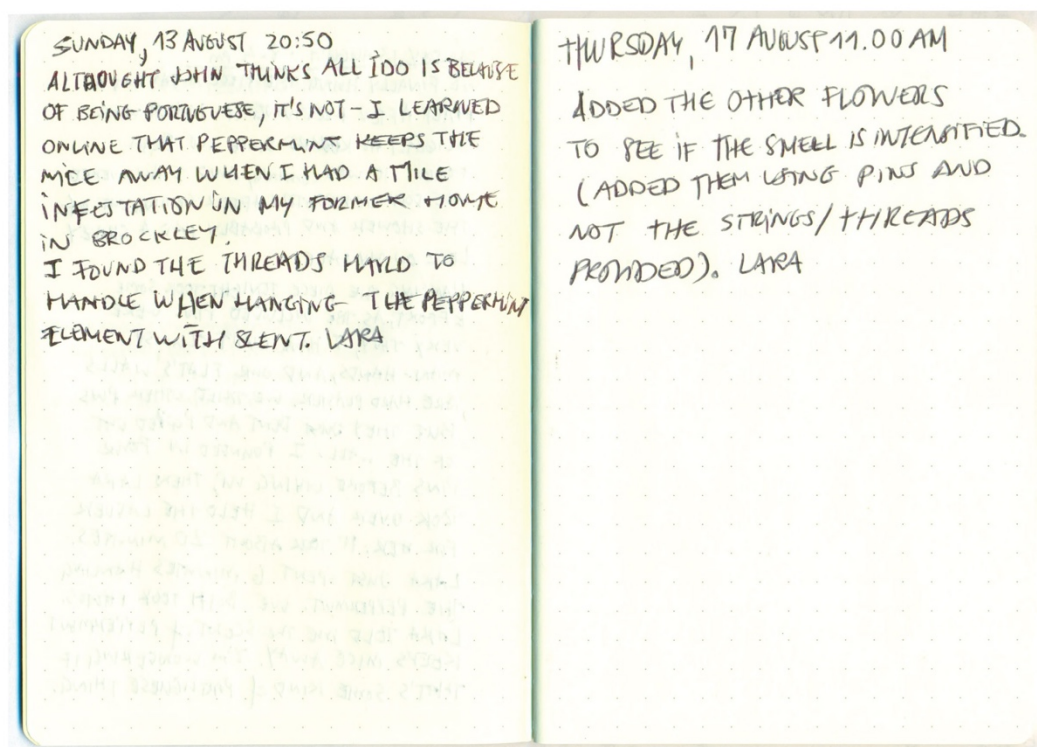 SUNDAY, 13 AUGUST 20:50
ALTHOUGHT JOHN THINKS ALL I DO IS BECAUSE
OF BEING PORTUGUESE, IT'S NOT - I LEARNED
ONLINE THAT PEPPERMINT KEEPS THE
MICE AWAY WHEN I HAD A MICE
INFESTATION IN MY FORMER HOME
IN BROCKLEY.
I FOUND THE THREADS HARD TO
HANDLE WHEN HANGING THE PEPPERMINT
ELEMENT WITH SCENT. LARA
THURSDAY, 17 AUGUST 11.00 AM
ADDED THE OTHER FLOWERS
TO SEE IF THE SMELL IS INTENSIFIED.
(ADDED THEM USING PINS AND
NOT THE STRINGS/THREADS
PROVIDED). LARA